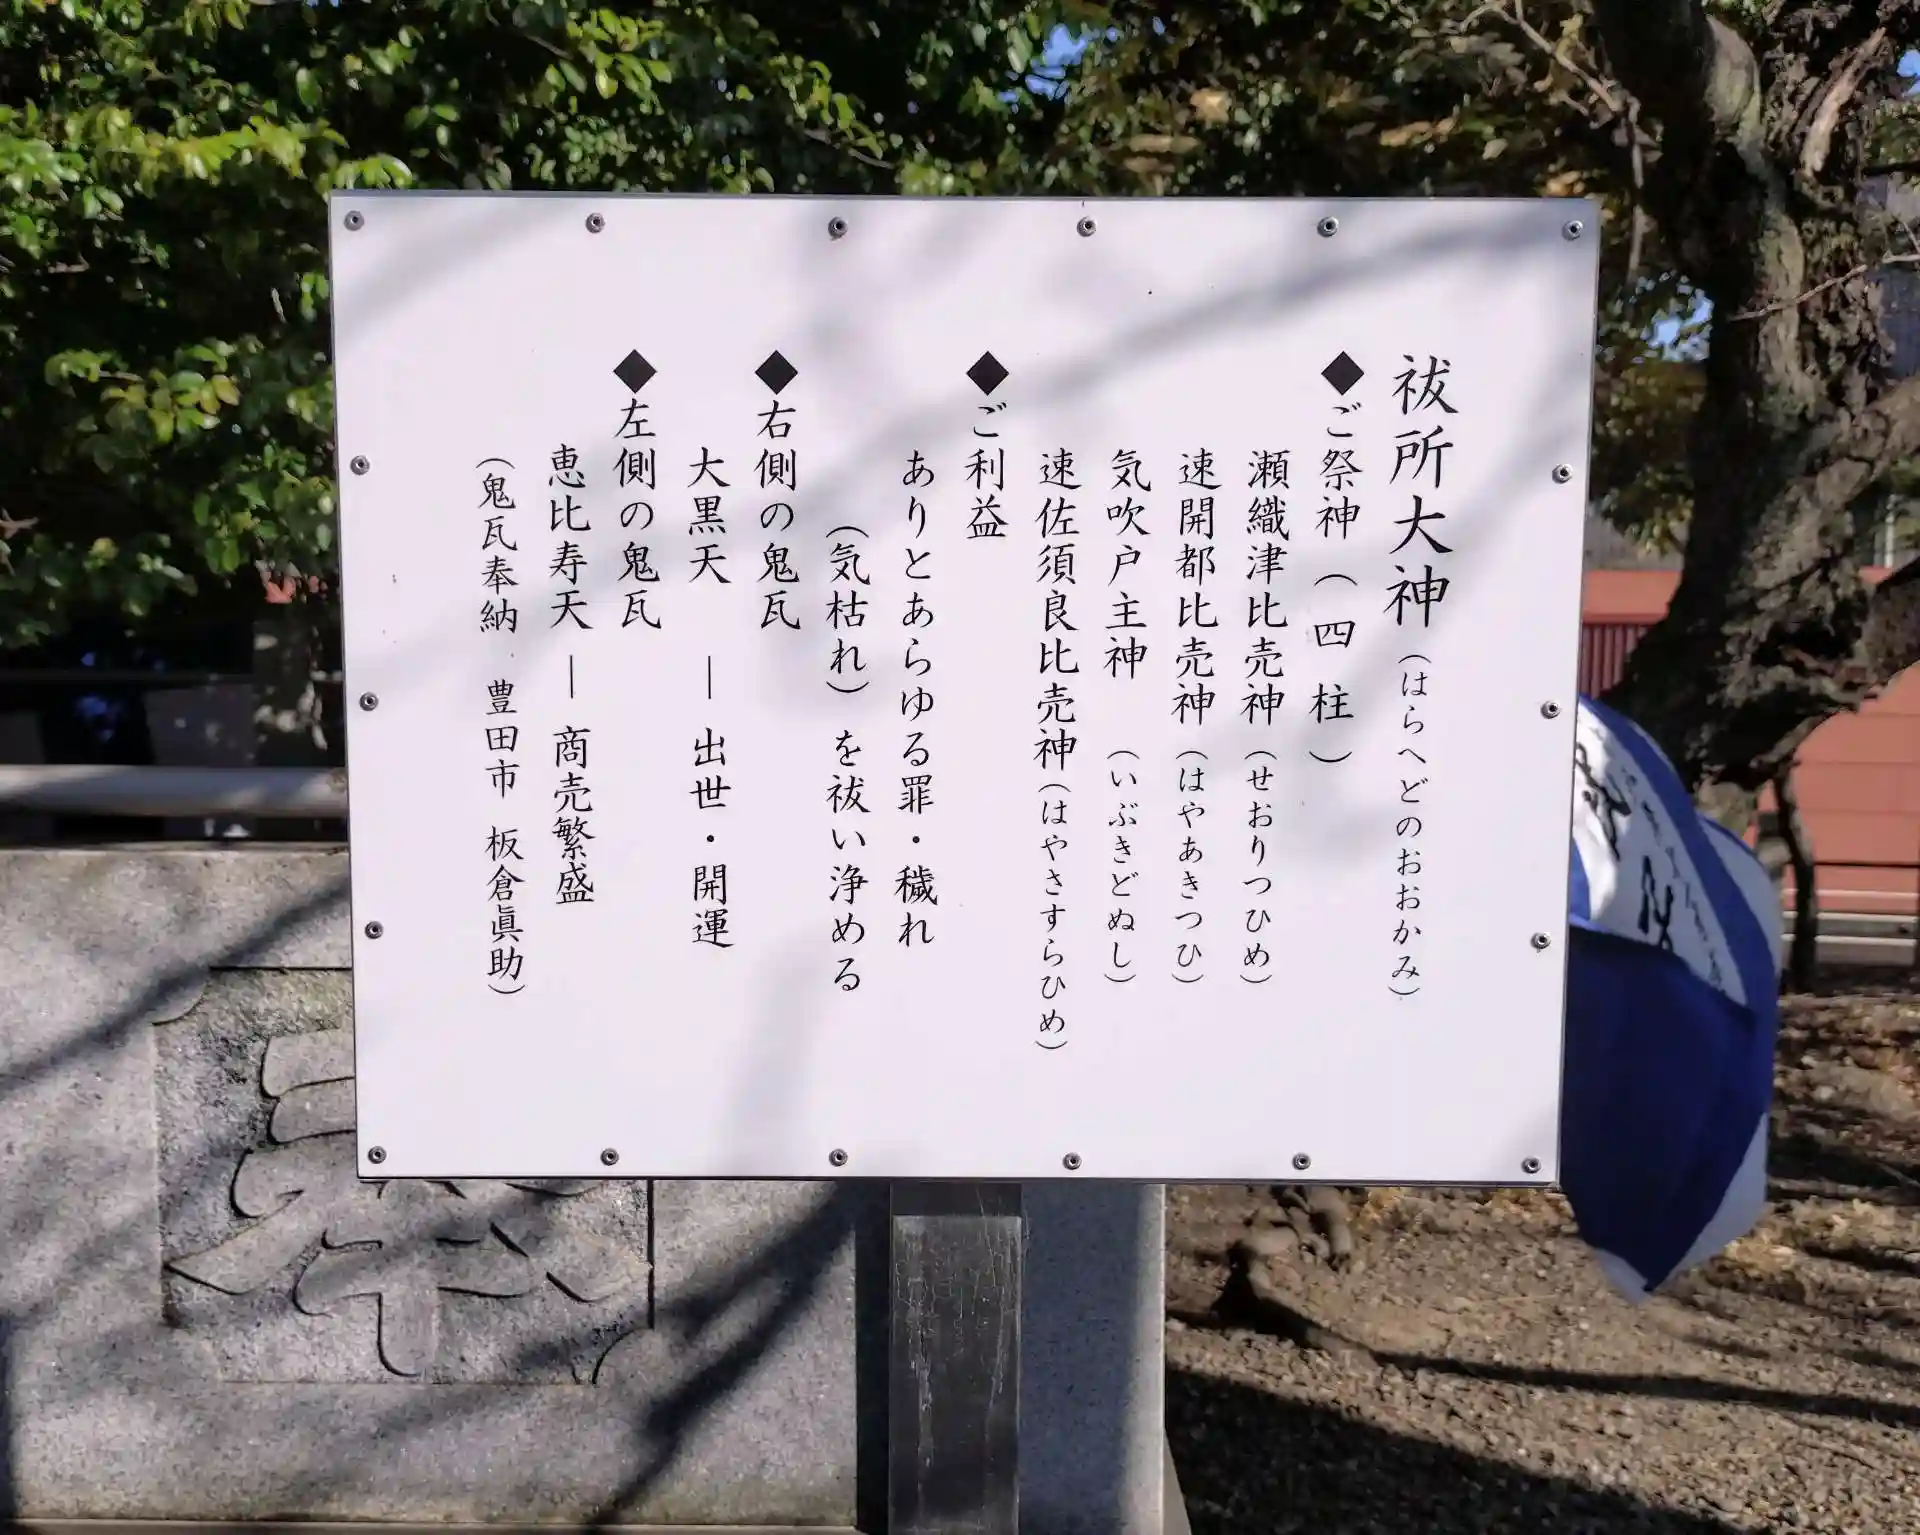 祓所大神（はらへどのおおかみ）
◆ご祭神（四柱）
瀬織津比売神（せおりつひめ）
速開都比売神（はやあきつひ）
気吹戸主神（いぶきどぬし）
速佐須良比売神（はやさすらひめ）
◆ご利益
ありとあらゆる罪・穢れ
（気枯れ）を祓い浄める
◆右側の鬼瓦
大黒天 ― 出世・開運
◆左側の鬼瓦
恵比寿天 ― 商売繁盛
（鬼瓦奉納 豊田市 板倉眞助）